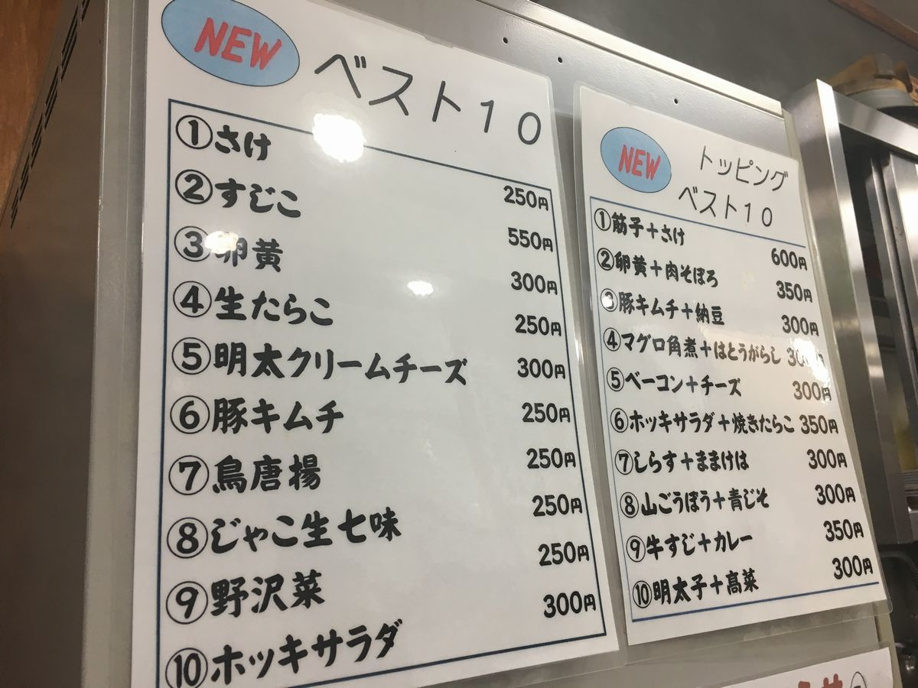 NEW ベスト10
①さけ 250円
②すじこ 550円
③卵黄 300円
④生たらこ 250円
⑤明太クリームチーズ 300円
⑥豚キムチ 250円
⑦鳥唐揚 250円
⑧じゃこ生七味 250円
⑨野沢菜 250円
⑩ホッキサラダ 300円
NEW トッピング
ベスト10
①筋子+さけ 600円
②卵黄+肉そぼろ 350円
③豚キムチ+納豆 300円
④マグロ角煮+はとうがらし
⑤ベーコン+チーズ 300円
⑥ホッキサラダ+焼きたらこ 350円
⑦しらす+ままけは 300円
⑧山ごうぼう+青じそ 300円
⑨牛すじ+カレー 350円
⑩明太子+高菜 300円